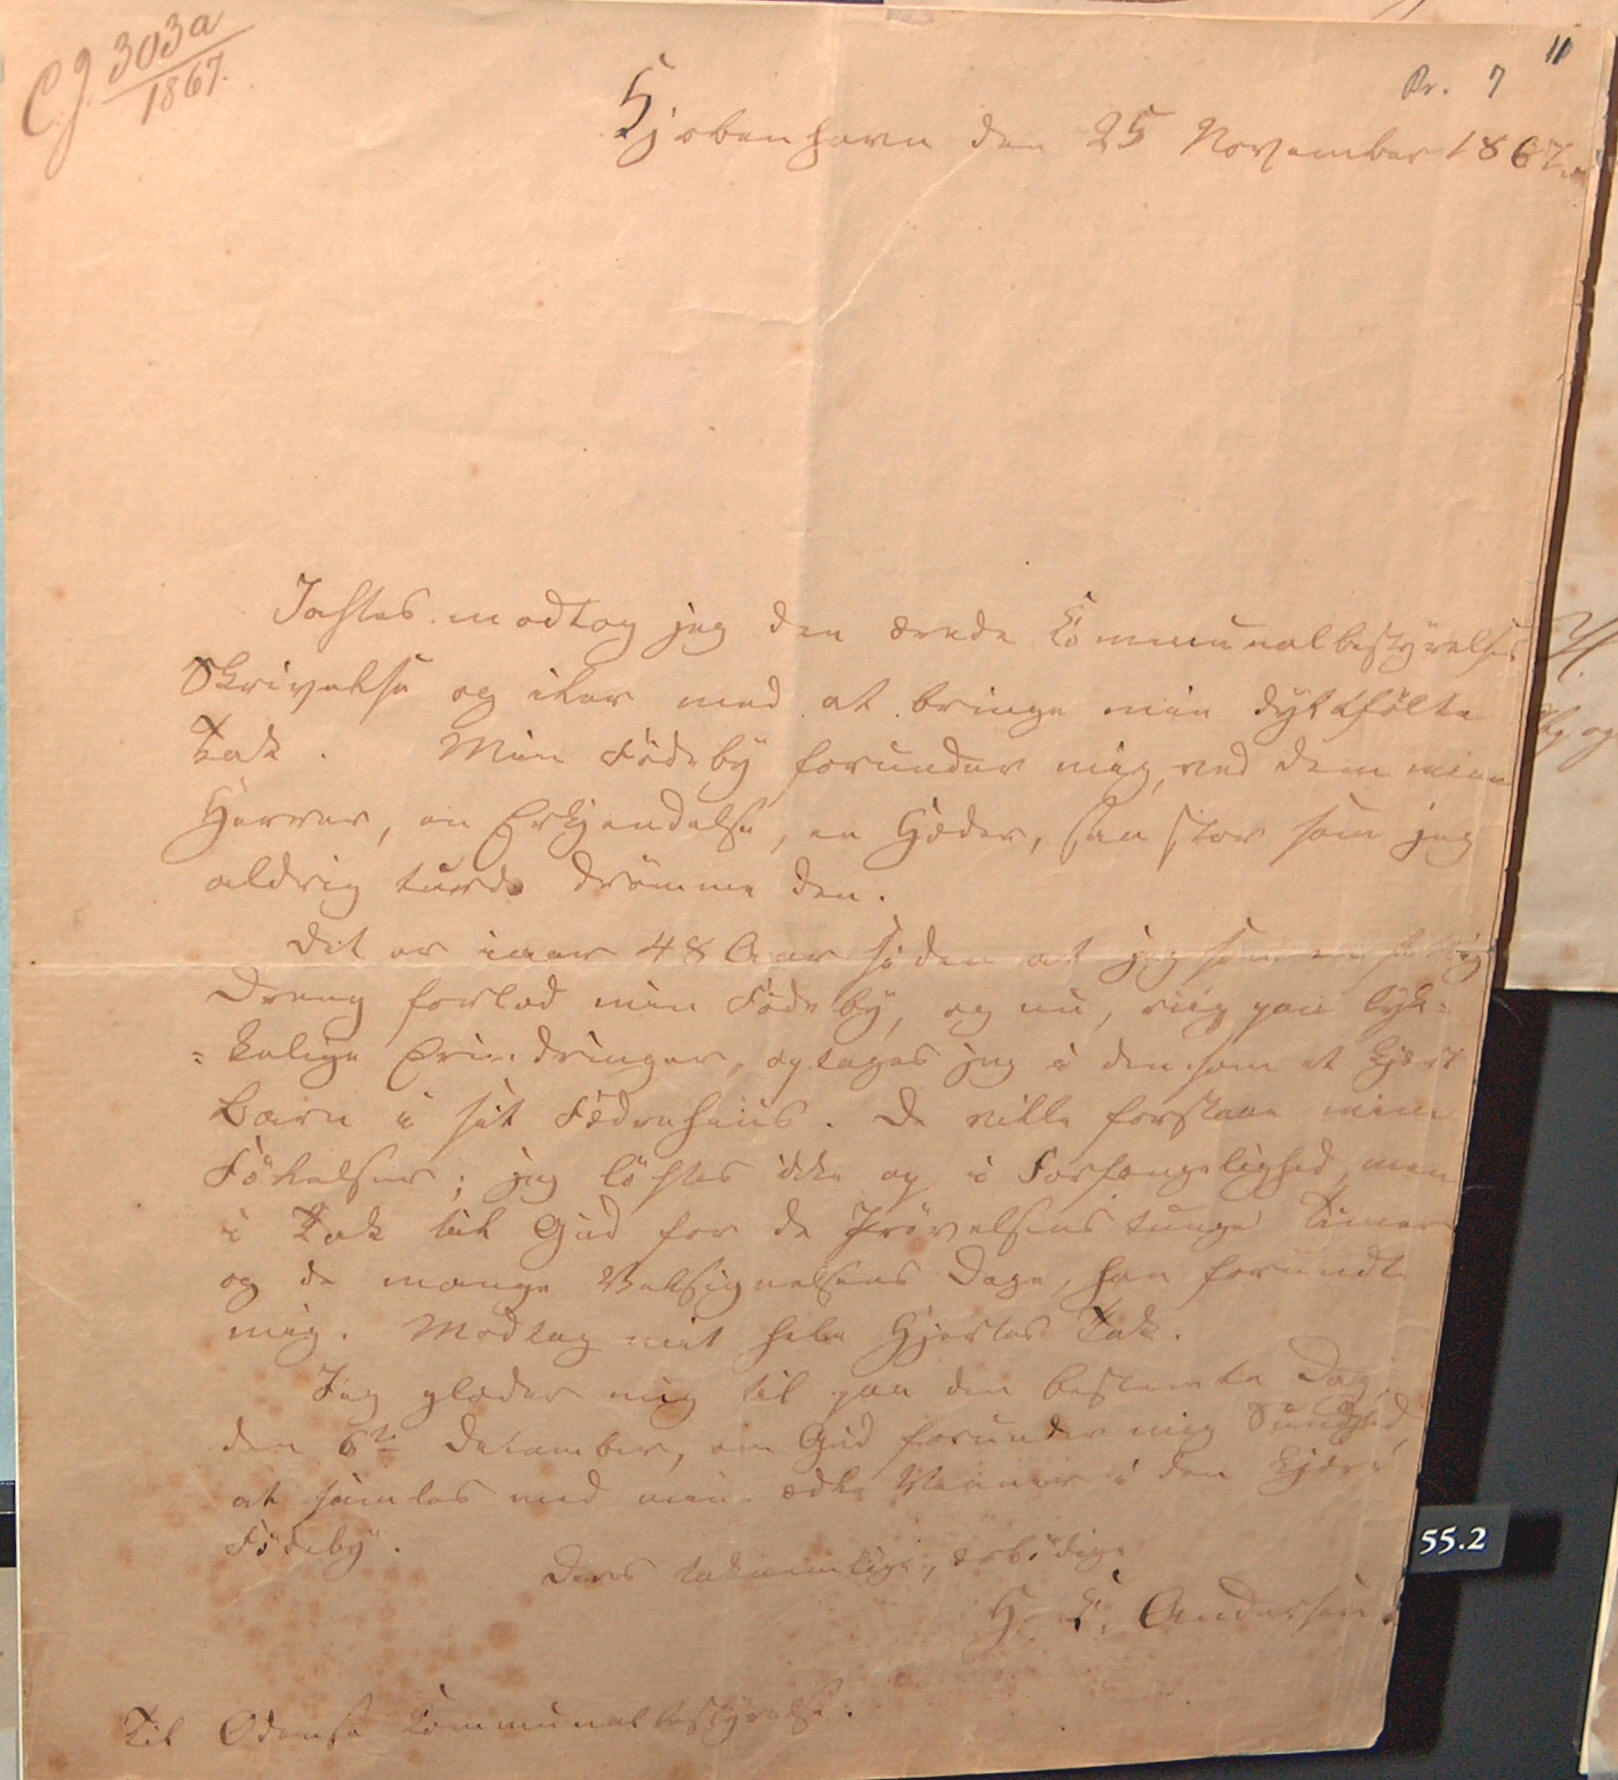 C.J. 303a
1867.
Pr. 7
11
Kjøbenhavn den 25 November 1867.
Iaftes modtog jeg den ærede Communalbestyrelses
Skrivelse og iler med at bringe min dybtfølte
Tak. Min Fødeby forunder mig, ved dem mine
Herrer, en Erkjendelse, en Hæder, saa stor som jeg
aldrig turde drømme den.
Det er iaar 48 Aar siden at jeg som en fattig
Dreng forlod min Fødeby, og nu, riig paa lyk-
=kelige Erindringer, optages jeg i den som et kjært
Barn i sit Fædrehuus. De ville forstaae mine
Følelser; jeg løftes ikke op i Forfængelighed, men
i Tak til Gud for de Prøvelsens tunge Timer
og de mange Velsignelsens Dage, han forundte
mig. Modtag mit hele Hjertes Tak.
Jeg glæder mig til paa den bestemte Dag,
den 6te December, om Gud forunder mig Sundhed,
at samles med mine ædle Venner i den kjære
Fødeby.
Deres taknemlige, ærbødige
H. C. Andersen.
Til Odense Communalbestyrelse.
55.2